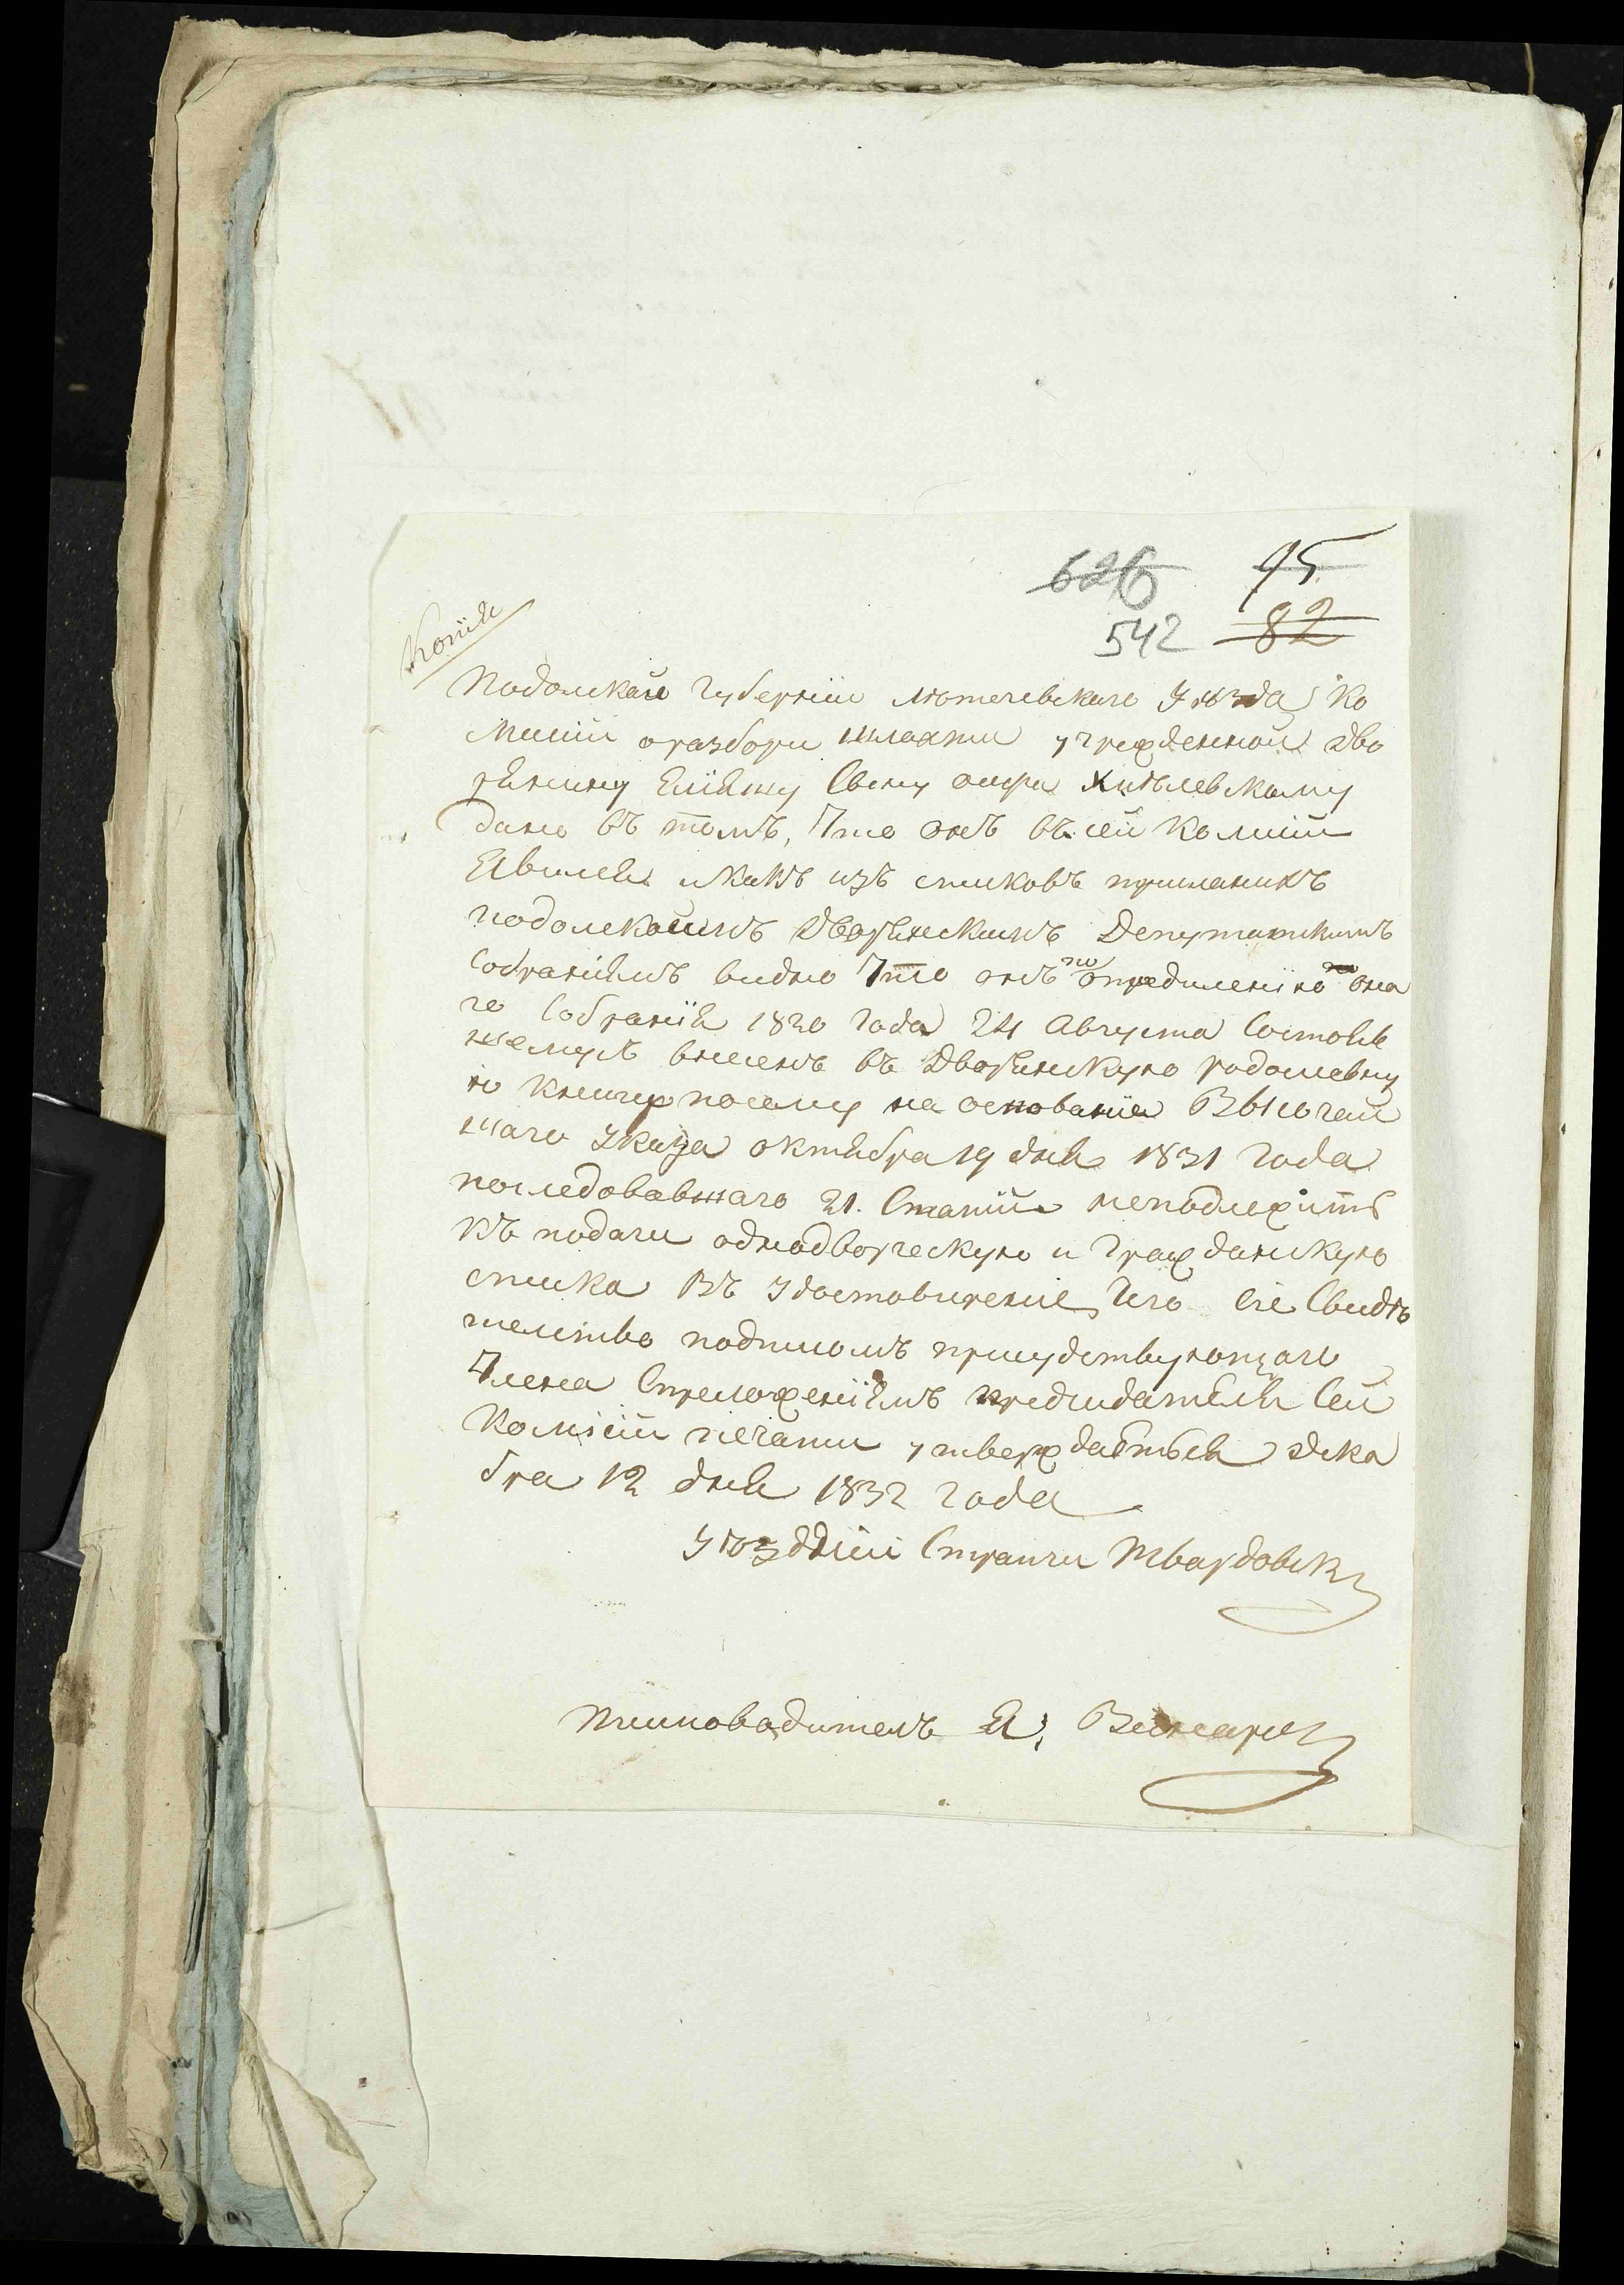 626 95
542 82
Копія
Подолской губерніи Лютечевскаго Уѣзда Ко
мисіи о разборе шляхты учрежденной дво
рянину Сыну Хмѣлевскому
дано въ томъ, Что онъ въ сей Комисіи
Явился и какъ изъ списковъ присланихъ
подолскоимъ Дворянскимъ Депутатскимъ
Собраніямъ видно Что онъ по определенію она
го Собранія 1820 Года 24 Августа Состояв
шемуся внесенъ въ Дворянскую родословну
ю книгу посему на основаніи Высочай
шаго Указа октября 19 дня 1831 Года
последовавшаго 21. Статіи неподлежитъ
къ подачи однодворческую и Гражданскую
списка Въ Удостовиреніе Чего Сіе Свидѣ
телство подписомъ присудствующаго
Члена Сприложеніямъ предсидателя Сей
Комісіи печати утверждаетъся Дека
бря 12 дня 1832 Года
Уѣздній Страпчи Твардовск
Писмоводитель Я.